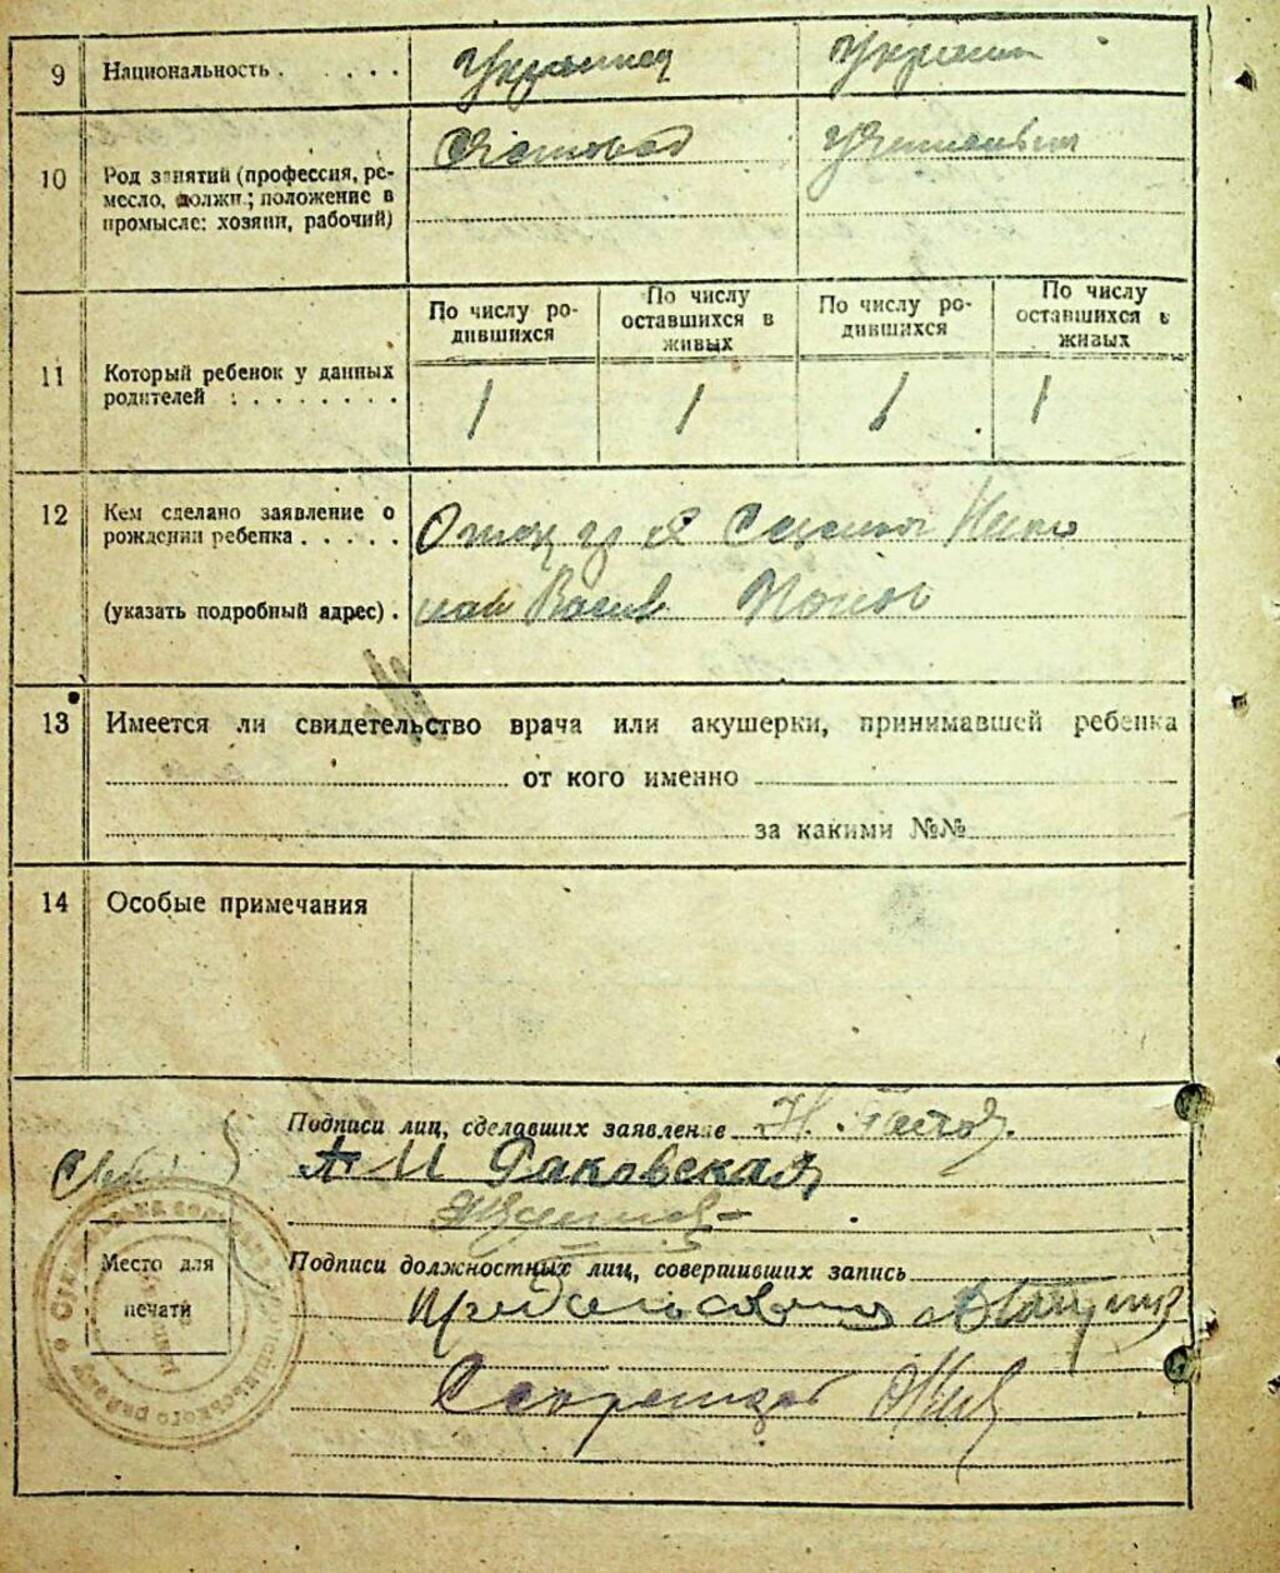 9 Национальность . . . . . Украинец Украин
10 Род занятий (профессия, ре-
месло, должн.; положение в
промысле: хозяин, рабочий)
Счетовод Учительни
По числу ро-
дившихся
По числу
оставшихся в
живых
По числу ро-
дившихся
По числу
оставшихся в
живых
11 Который ребенок у данных
родителей : . . . . . . . .
1 1 1 1
12 Кем сделано заявление о
рождении ребенка . . . . .
(указать подробный адрес) .
Отец
13 Имеется ли свидетельство врача или акушерки, принимавшей ребенка
от кого именно
за какими №№
14 Особые примечания
Подписи лиц, сделавших заявление Н.
А И Раковская
Место для
печати
Подписи должностных лиц, совершивших запись
Секретарь